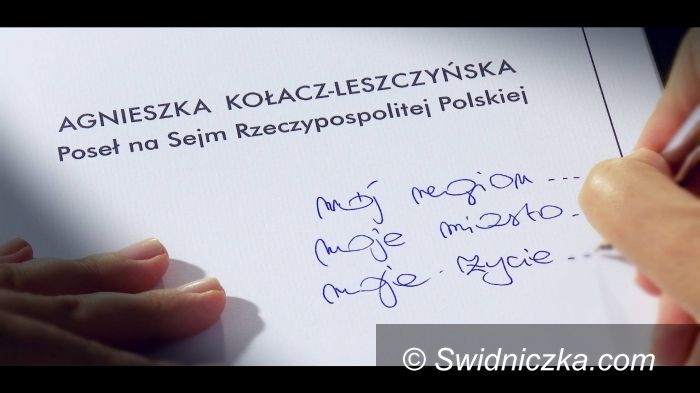 AGNIESZKA KOŁACZ-LESZCZYŃSKA
Poseł na Sejm Rzeczypospolitej Polskiej
mój region ...
moje miasto.
moje życie ..
© Swidniczka.com